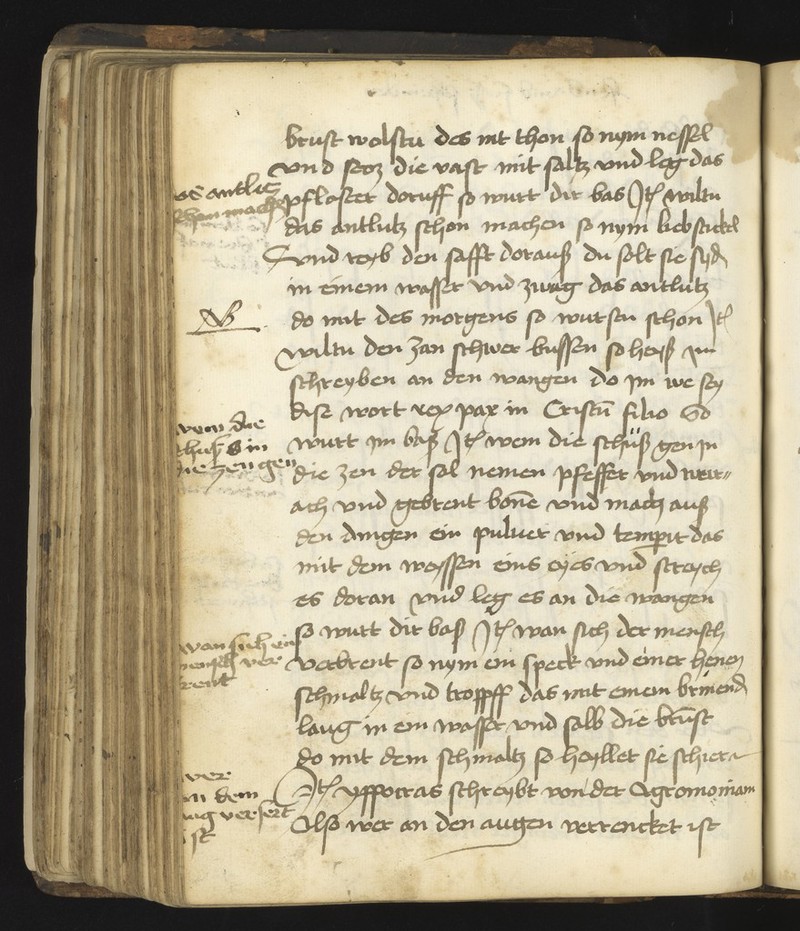 brust wolstu des nit thon so nym nessel
vnd stoz die vast mit saltz vnd leg das
pflaster doruff so wurt dir bas Jt wiltu
das antlutz schon machen so nym liebstickel
vnd reyb den safft dorauß du solt sie syd
in einem wasser vnd zwag das antlutz
do mit des morgens so wurstu schon Jt
wiltu den zan schwer bussen so heiß im
schreyben an den wangen do im we sey
dise wort rex pax in Cristu filio So
wurt im baß Jt wem die schuß gen in
die zen der sol nemen pfeffer vnd weir
ach vnd gebrent bone vnd mach auß
den dingen ein puluer vnd temperir das
mit dem weyssen eins eyes vnd streych
es doran vnd leg es an die wangen
so wurt dir baß Jt wan sich der mensch
verbrent so nym ein speck vnd einer henen
schmaltz vnd tropff das mit einem brinend
laug in ein wasser vnd salb die brust
do mit dem schmaltz so heyllet sie schier
Jt yppocras schreybt von der Agromoniam
Also wer an den augen verrencket ist
antlitz
schon mache
NB
wem die
schuß in
die zen gen
wan sich ein
mensch ver
brent
wer
an dem
aug versert
ist